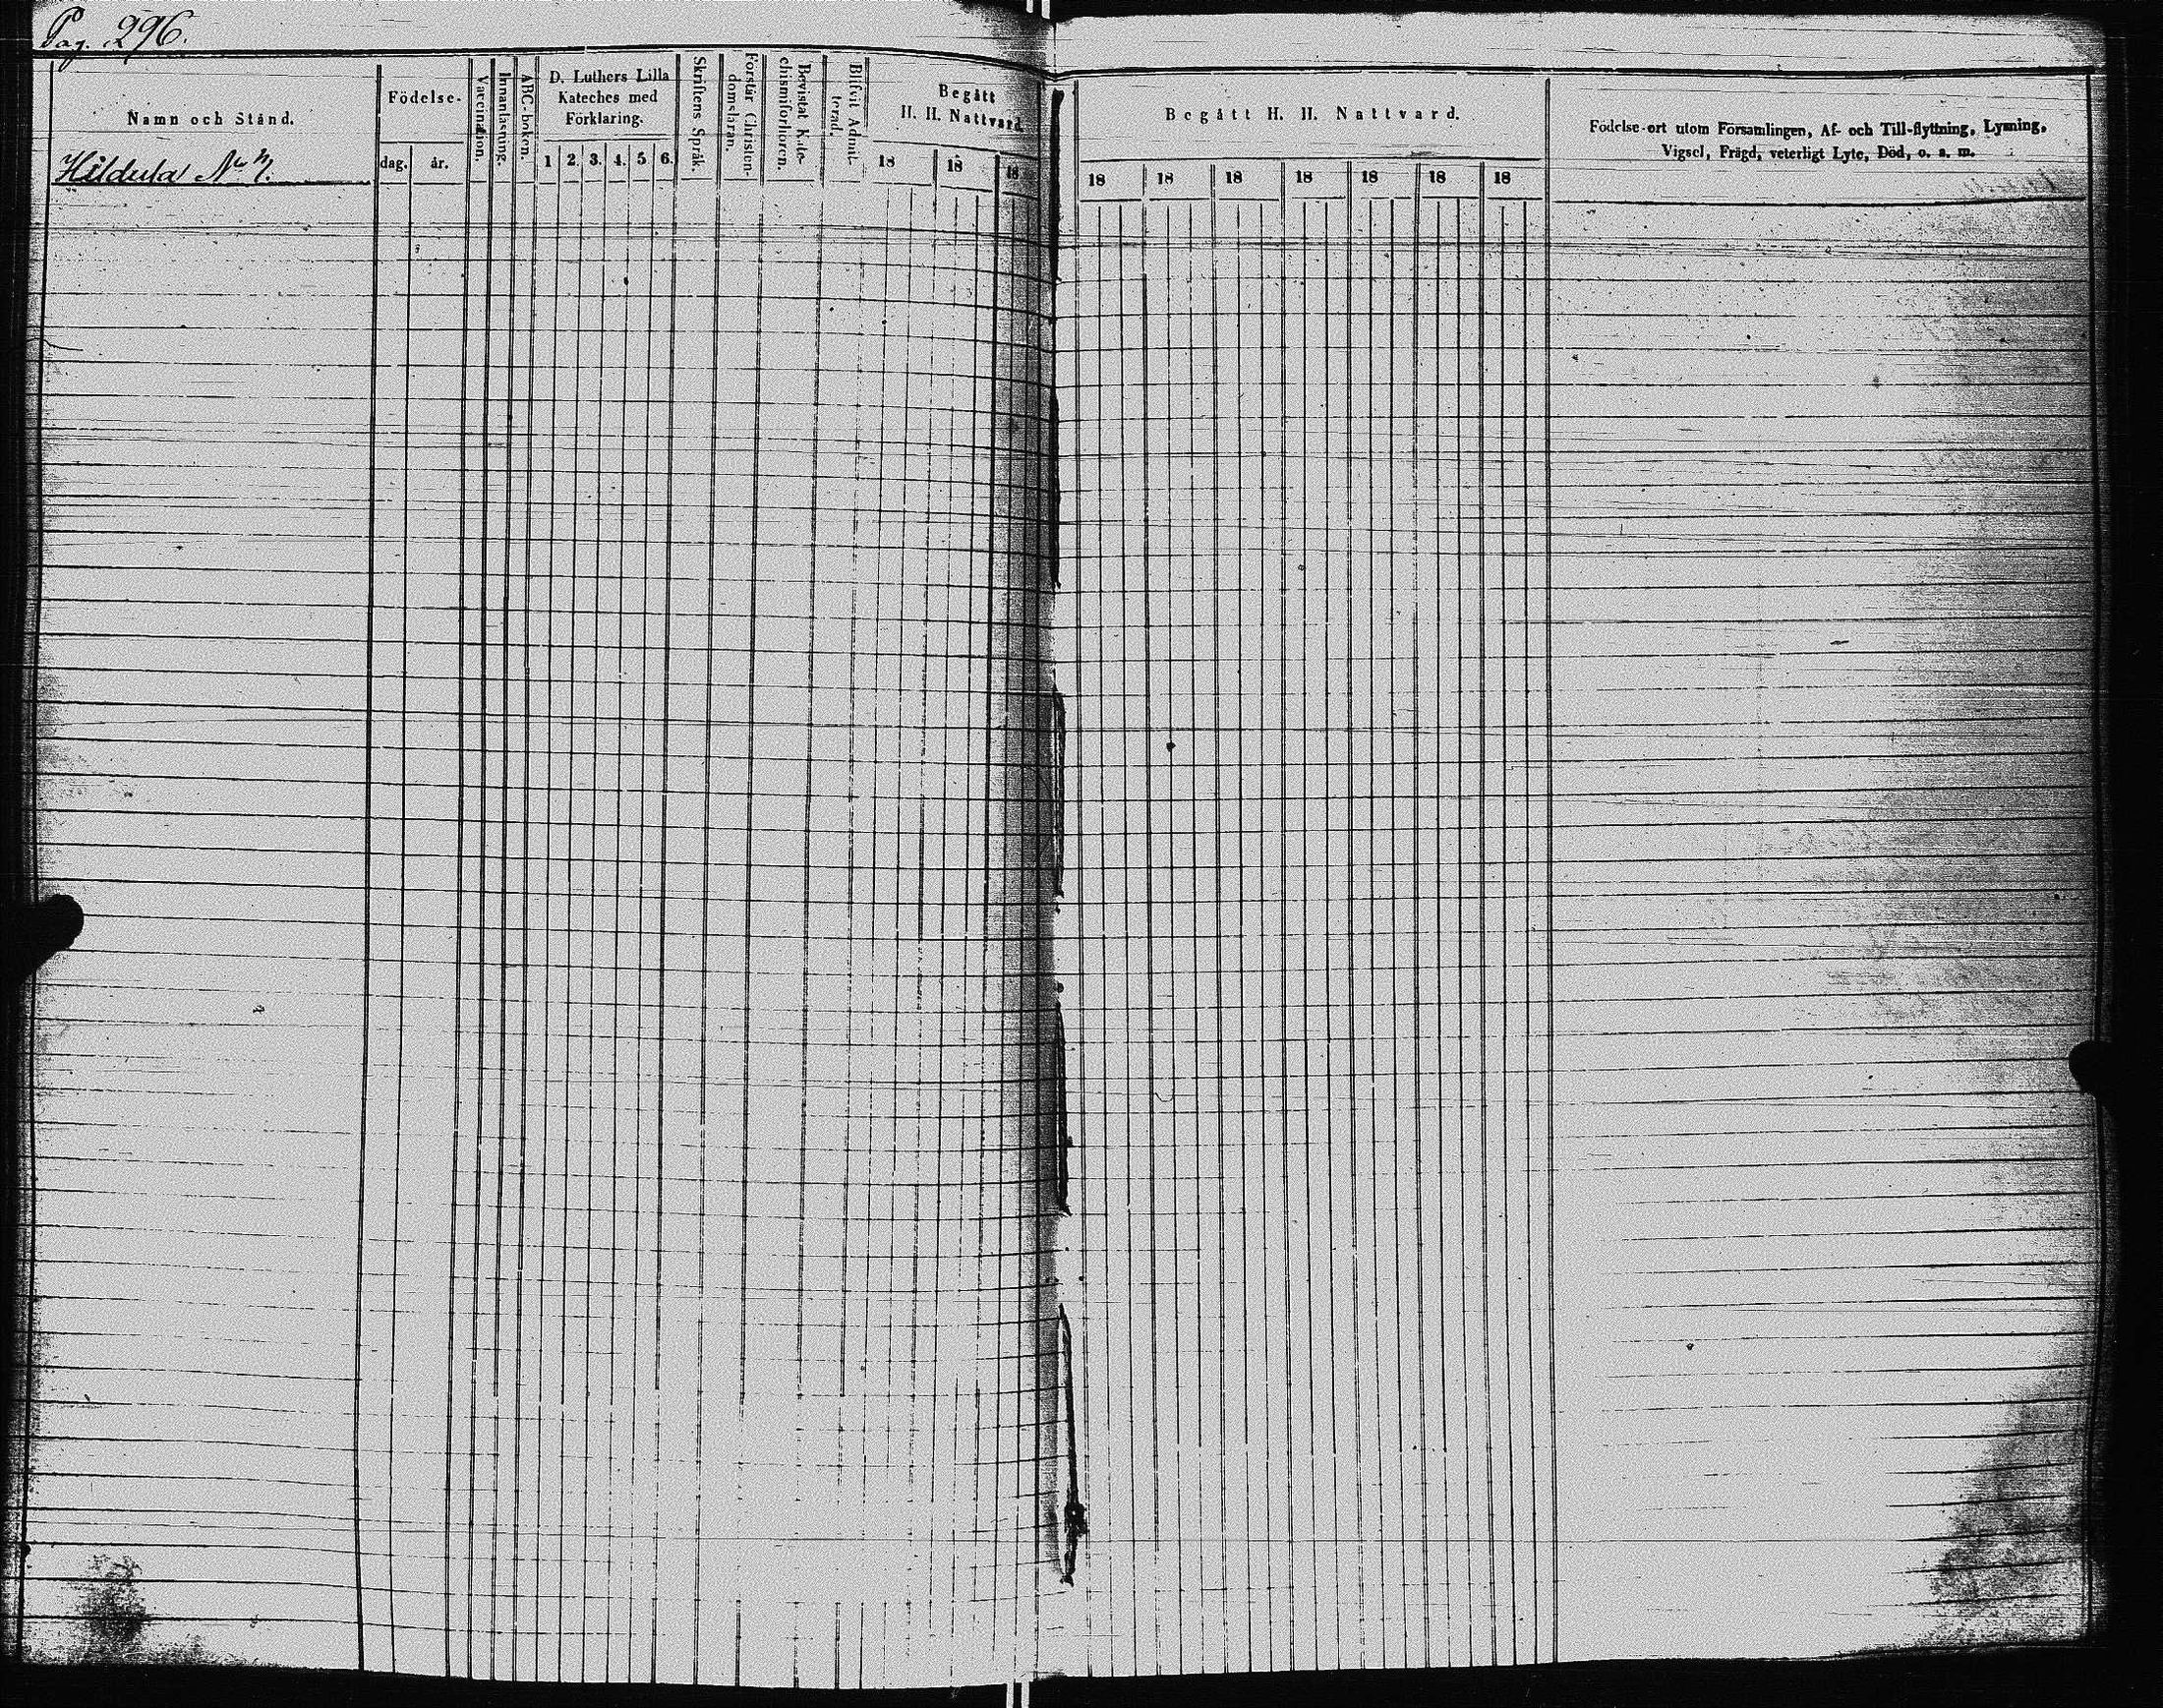 Pag. 296.
Namn och Stånd.
Hildula No
Födelse-
dag.
år.
Vaccination.
Innanläsning.
ABC-boken.
D. Luthers Lilla
Kateches med
Förklaring.
1 2. 3. 4. 5 6.
Skriftens Språk.
Förstår Christen-
domsläran.
Bevistat Kate-
chismiförhören.
Blifvit Admit-
terad.
Begått
H. H. Nattvard.
18 18 18
Begått H. H. Nattvard.
18 18 18 18 18 18 18
Födelse-ort utom Församlingen, Af- och Till-flyttning, Lysning,
Vigsel, Frägd, veterligt Lyte, Död, o. s. m.